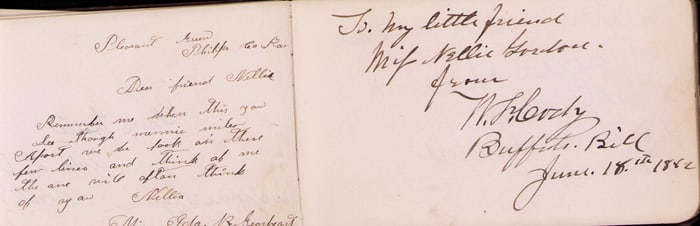 Pleasant Green
Philips Co Kan
Dear friend Nellie
Remember me when this you
see though mennie miles
Apart we be look on these
few lines and think of me
the one will often think
of you Nellie
Ada B
To My little friend
Miss Nellie Gordon.
from
W. F. Cody
Buffalo. Bill
June. 18.th 1882